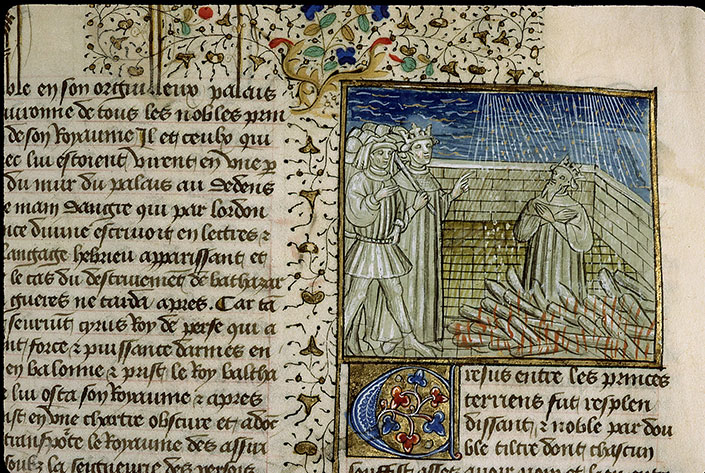 ble en son orguilleux palais
uironne de tous les nobles prin
de son Royaume Il et ceulx qui
ec lui estoient virent en vne p
du mur du palais au dedens
e main dangre qui par lordon
nce diuine escriuoit en lectres &
langage hebrieu apparissant et
le cas du destruiement de balthazar
gueres ne tarda apres. Car ta
seuruint cyrus Roy de perse qui a
nt force & puissance darmes en
en babilonie & prist le Roy baltha
e lui osta son Royaume & apres
ist en vne chartre obscure et adoc
transpote le Royaume des assir
soubz la seigneurie des persois
Cresus entre les princes
terriens fut resplen
dissant, & noble par dou
ble tiltre dont chascun
souffist assez